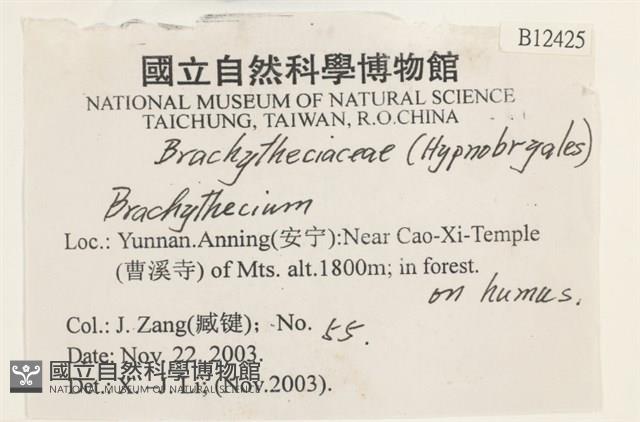 B12425
國立自然科學博物館
NATIONAL MUSEUM OF NATURAL SCIENCE
TAICHUNG, TAIWAN, R.O.CHINA
Brachytheciaceae (Hypnobryales)
Brachythecium
Loc.: Yunnan.Anning(安宁):Near Cao-Xi-Temple
(曹溪寺) of Mts. alt.1800m; in forest.
on humus.
Col.: J. Zang(臧键); No. 55.
Date: Nov. 22, 2003.
國立自然科學博物館
NATIONAL MUSEUM OF NATURAL SCIENCE
Det.: X.-J. Li; (Nov.2003).